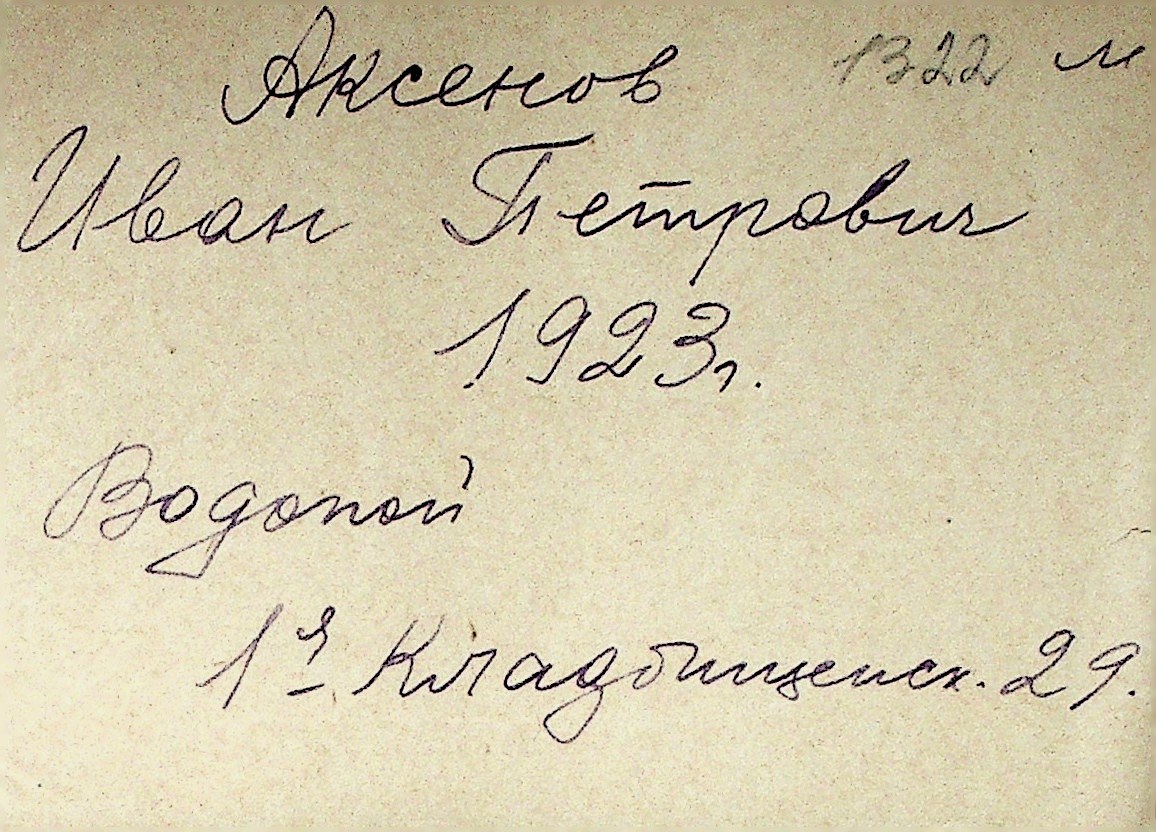 Аксенов 1322 м
Иван Петрович
1923г.
Водопой
1я Кладбищенск. 29.